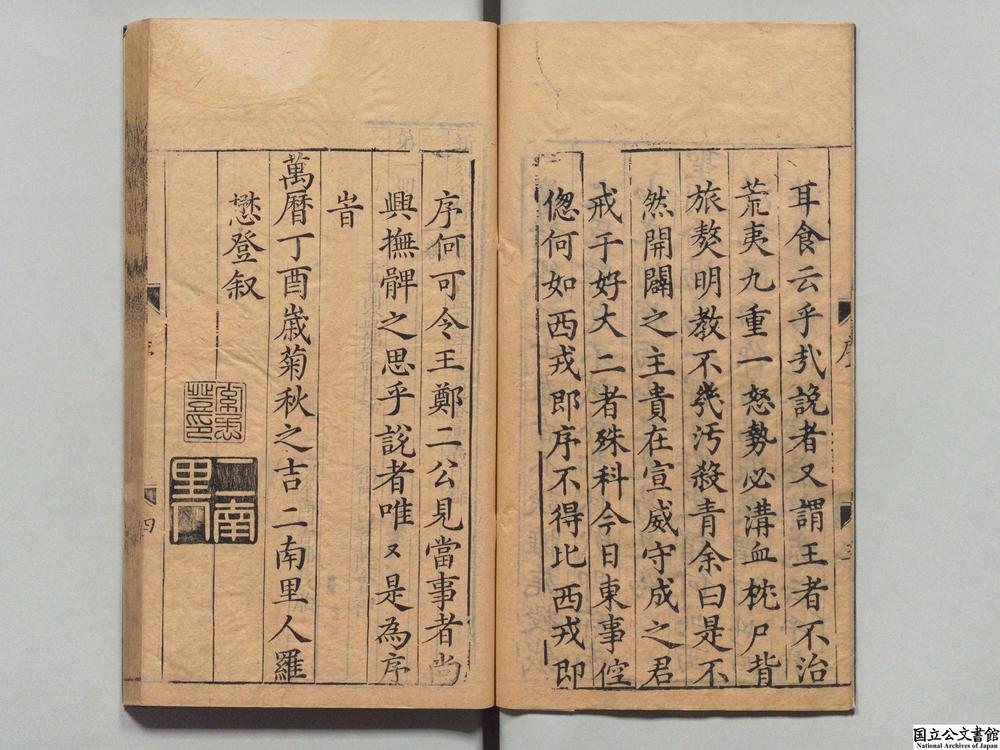 耳食云乎㢤說者又謂王者不治
荒夷九重一怒勢必溝血枕尸背
旅獒明教不幾汚殺青余曰是不
然開闢之主貴在宣威守成之君
戒于好大二者殊科今日東事倥
偬何如西戎即序不得比西戎即
序何可令王鄭二公見當事者尚
興撫髀之思乎說者唯又是為序
旹
萬曆丁酉歲菊秋之吉二南里人羅
懋登叙
羅懋登印
二南里人
序
四
国立公文書館
National Archives of Japan